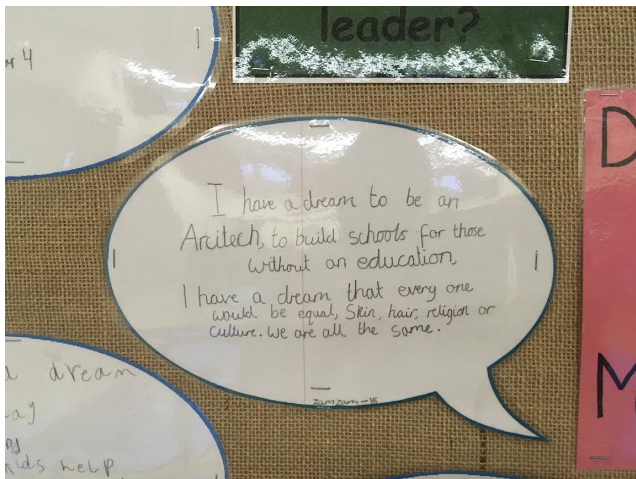 leader?
r 4
I have a dream to be an
Arcitech, to build schools for those
without an education,
I have a dream that every one
would be equal, Skin, hair, religion or
culture. We are all the same.
zamzam - Y5
dream
kids help
D
M